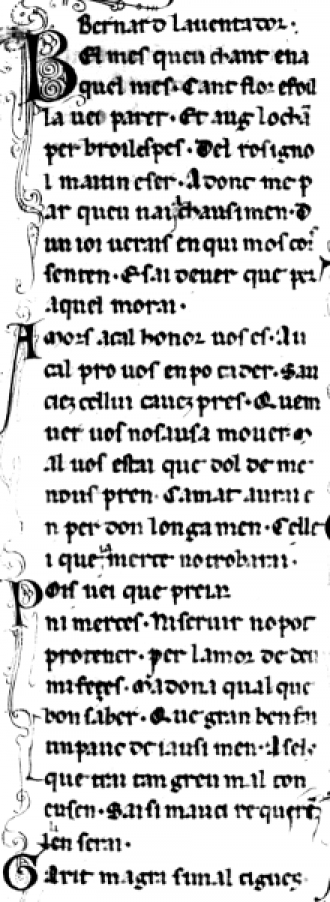 Bernard lauentador.
Bel mes queu chant en a
quel mes. Cant flor efoil
la uei parer. Et aug lo chā
per broil espes. Del rosigno
l maitin eser. Adonc me p
ar queu nai iausimen. D
un ioi uerais en qui mos cor
senten. E sai deuer que per
aquel morai.
Amors a cal honor uos es. Ni
cal pro uos en po cader. San
ciez cellui cauez pres. Quem
uer uos nosausa mouer.
al uos estai que dol de me
nous pren. Camat aurai e
n per don longamen. Celle
i que la merce no trobarai.
Pois uei que preiar
ni merces. Ni seruir no pot
pro tener. per lamor de deu
mi feçes. Ma dona qual que
bon saber. Que gran ben fai
un pauc de iausimen. A sel
que trai tan greu mal con
eu sen. E si aisi mauci requer
len serai.
Garit magra si mal aigues.